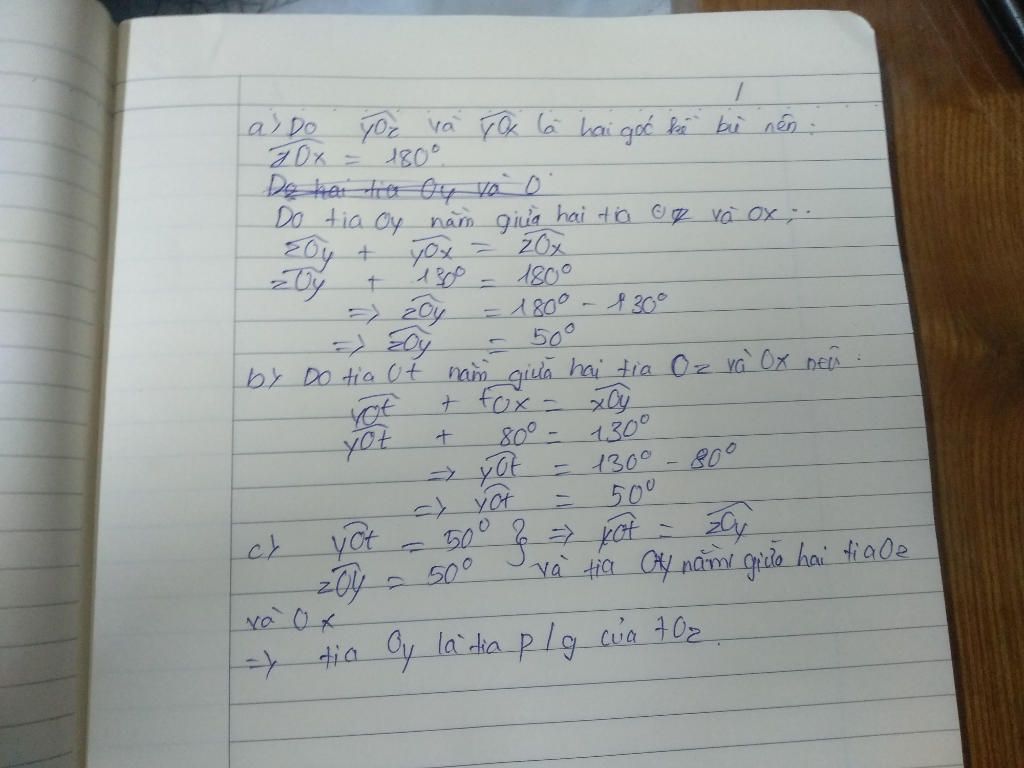 1
a) Do yOz và yOx là hai góc kề bù nên:
zOx = 180°
Do hai tia Oy và O
Do tia Oy nằm giữa hai tia Oz và Ox;
zOy + yOx = zOx
zOy + 130° = 180°
=> zOy = 180° - 130°
=> zOy = 50°
b) Do tia Ot nằm giữa hai tia Oz và Ox nên:
yOt + tOx = xOy
yOt + 80° = 130°
=> yOt = 130° - 80°
=> yOt = 50°
c) yOt = 50° } => yOt = zOy
zOy = 50° và tia Oy nằm giữa hai tia Oz
và Ox
=> tia Oy là tia p/g của tOz.